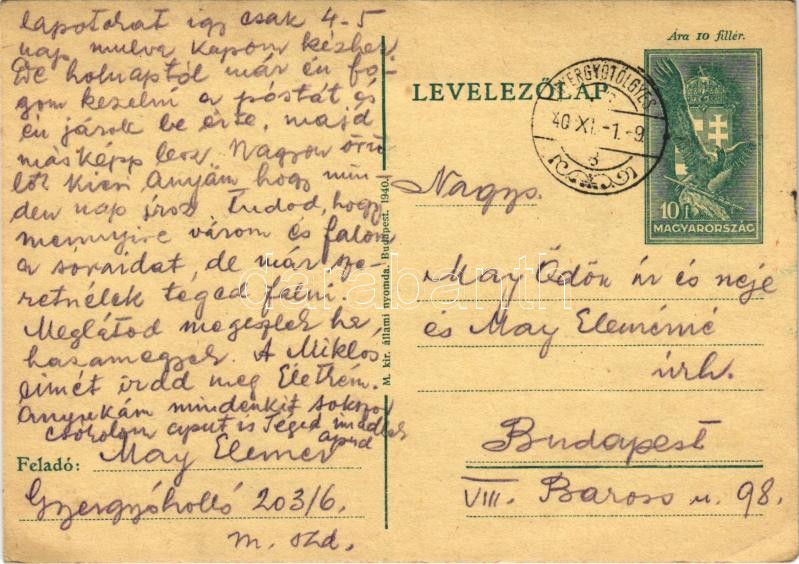 lapotokat így csak 4-5
nap mulva kapom kézhez
De holnaptól már én fo-
gom kezelni a póstát és
én járok be érte, majd
másképp lesz. Nagyon örü-
lök kicsi Anyám hogy min-
den nap írsz Tudod, hogy
mennyire várom és falom
a soraidat, de már sze-
retnélek téged falni.
Meglátod megeszlek ha
hazamegyek. A Miklós
címét írdd meg Életkém.
Anyukám mindenkit sokszor
csókolom aput is Téged imádlak
apud
Feladó: May Elemér
Gyergyóholló 203/6.
m. szd.
M. kir. állami nyomda. Budapest. 1940.
Ára 10 fillér.
LEVELEZŐLAP
GYERGYÓTÖLGYES
40 XI. -1. -9
10 f
MAGYARORSZÁG
Nagys.
May Ödön úr és neje
és May Elemérné
úrh.
Budapest
VIII. Baross u. 98.
darabanth